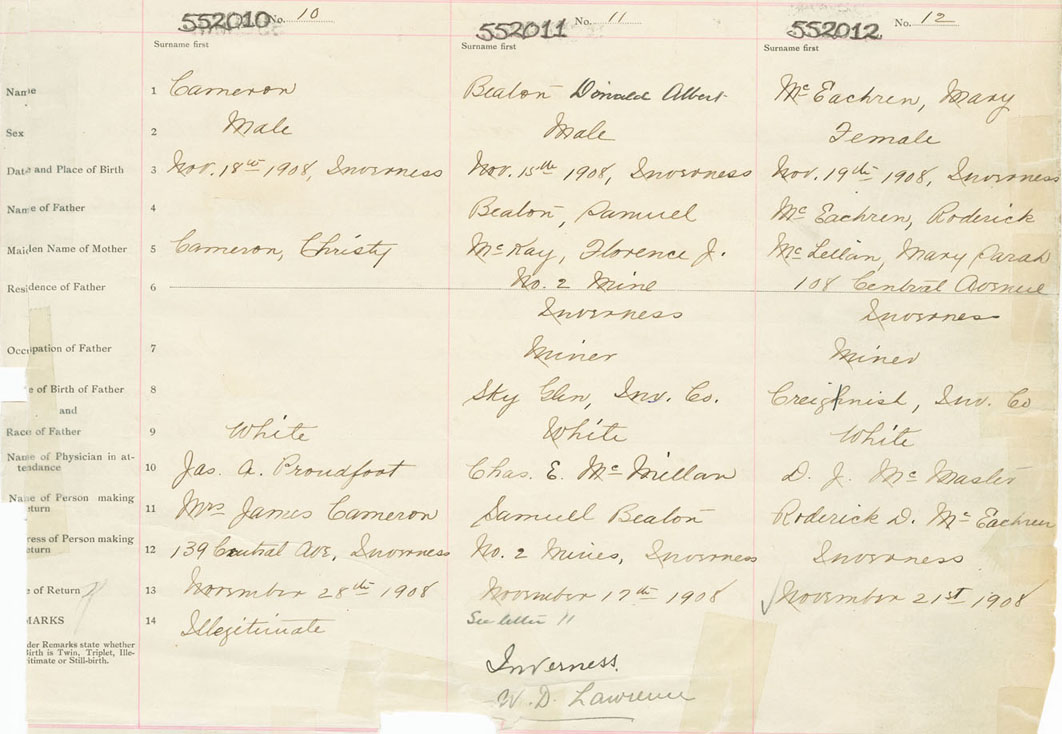 552010 No. 10 552011 No. 11 552012 No. 12
Surname first Surname first Surname first
Name 1 Cameron Beaton Donald Albert McEachren, Mary
Sex 2 Male Male Female
Date and Place of Birth 3 Nov. 18th 1908, Inverness Nov. 15th 1908, Inverness Nov. 19th 1908, Inverness
Name of Father 4 Beaton, Samuel McEachren, Roderick
Maiden Name of Mother 5 Cameron, Christy McKay, Florence J. McLellan, Mary Sarah
Residence of Father 6 No. 2 Mine 108 Central Avenue
Inverness Invernes
Occupation of Father 7 Miner Miner
e of Birth of Father 8 Sky Glen, Inv. Co. Creignish, Inv. Co
and
Race of Father 9 White White White
Name of Physician in at-
tendance 10 Jas. A. Proudfoot Chas. E. McMillan D. J. McMaster
Name of Person making
eturn 11 Mrs James Cameron Samuel Beaton Roderick D. McEachren
ress of Person making
eturn 12 139 Central Ave, Inverness No. 2 Mines, Inverness Inverness
e of Return 13 November 28th 1908 November 17th 1908 November 21st 1908
MARKS 14 Illegitimate See letter 11
der Remarks state whether
Birth is Twin, Triplet, Ille-
itimate or Still-birth.
Inverness.
W. D. Lawrence